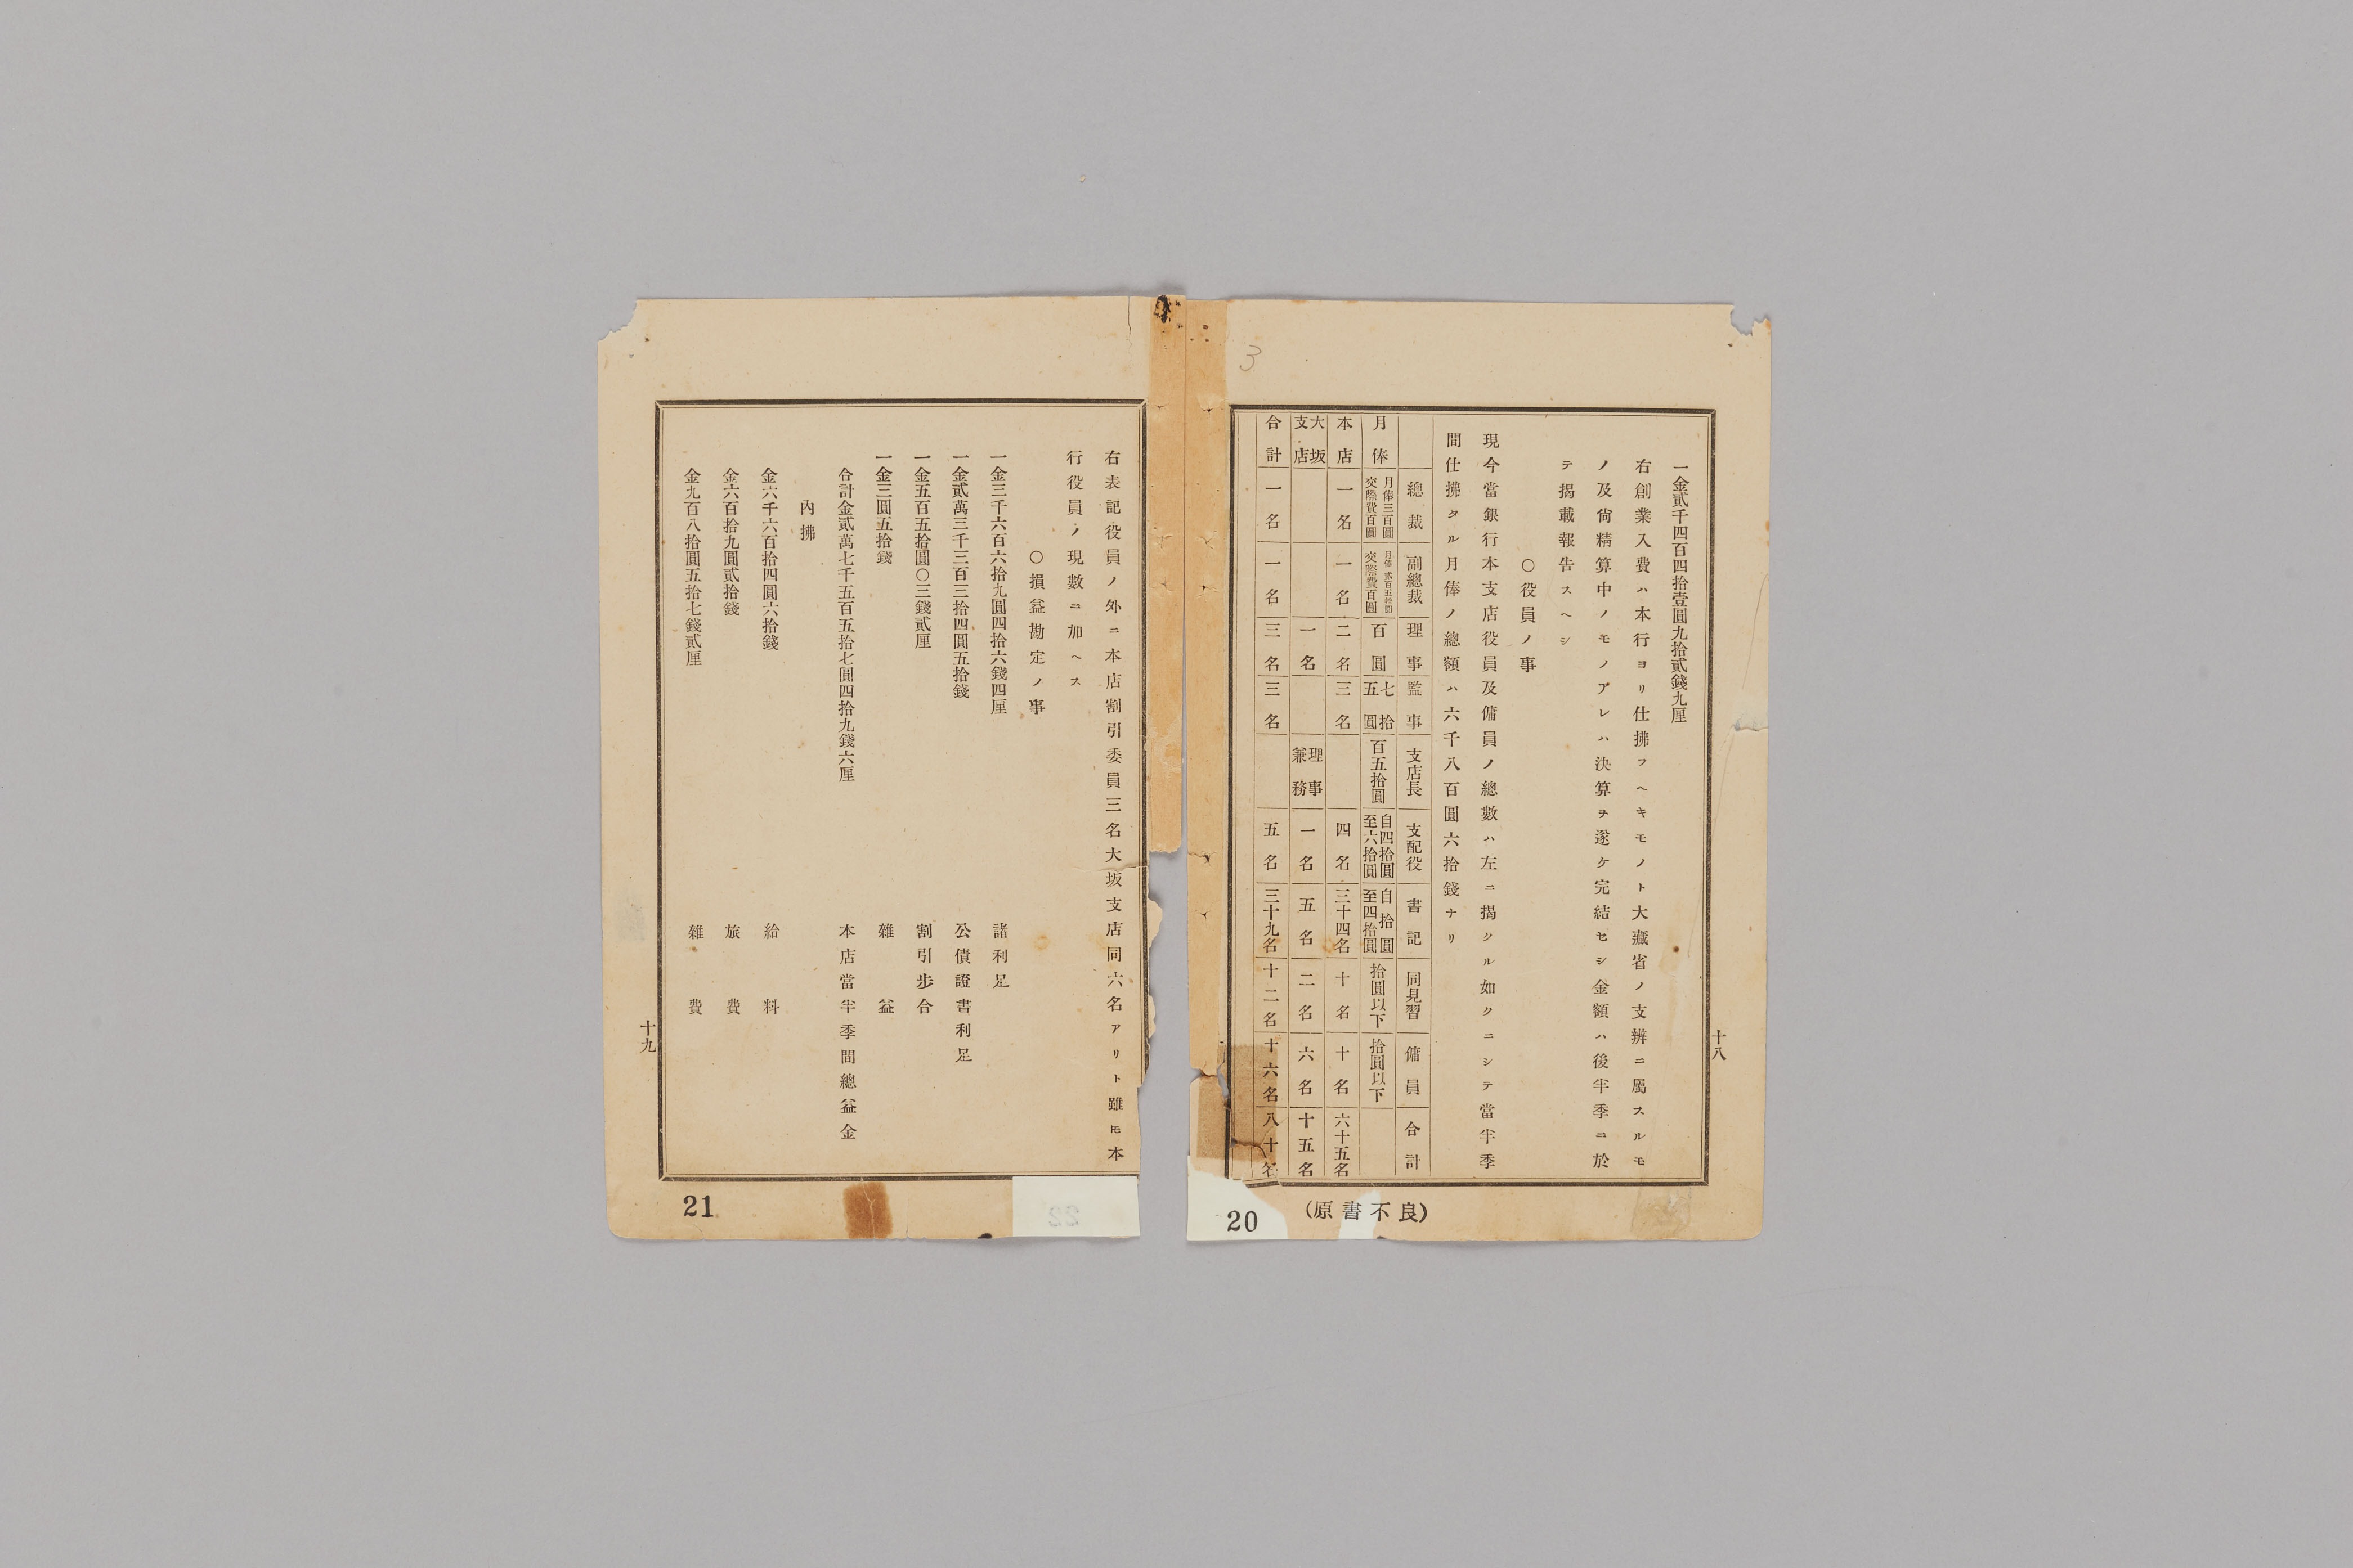 一金貳千四百四拾壹圓九拾貳錢九厘
右創業入費ハ本行ヨリ仕拂フヘキモノト大藏省ノ支辨ニ屬スルモ
ノ及尙精算中ノモノアレハ決算ヲ遂ケ完結セシ金額ハ後半季ニ於
テ揭載報告スヘシ
〇役員ノ事
現今當銀行本支店役員及傭員ノ總數ハ左ニ揭クル如クニシテ當半季
間仕拂タル月俸ノ總額ハ六千八百圓六拾錢ナリ
總裁 副總裁 理事 監事 支店長 支配役 書記 同見習 傭員 合計
月俸 月俸三百圓交際費百圓 月俸貳百五拾圓交際費百圓 百圓 七拾五圓 百五拾圓 自四拾圓至六拾圓 自拾圓至四拾圓 拾圓以下 拾圓以下
本店 一名 一名 二名 三名 四名 三十四名 十名 十名 六十五名
大坂支店 一名 理事兼務 一名 五名 二名 六名 十五名
合計 一名 一名 三名 三名 五名 三十九名 十二名 十六名 八十名
十八
20
(原書不良)
3
右表記役員ノ外ニ本店割引委員三名大坂支店同六名アリト雖ㇳモ本
行役員ノ現數ニ加ヘス
〇損益勘定ノ事
一金三千六百六拾九圓四拾六錢四厘 諸利足
一金貳萬三千三百三拾四圓五拾錢 公債證書利足
一金五百五拾圓〇三錢貳厘 割引步合
一金三圓五拾錢 雜益
合計金貳萬七千五百五拾七圓四拾九錢六厘 本店當半季間總益金
內拂
金六千六百拾四圓六拾錢 給料
金六百拾九圓貳拾錢 旅費
金九百八拾圓五拾七錢貳厘 雜費
十九
21
22